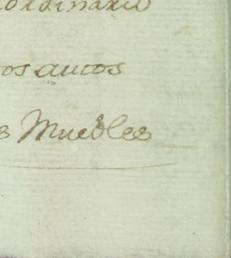 ordinario
os autos
s Muebles